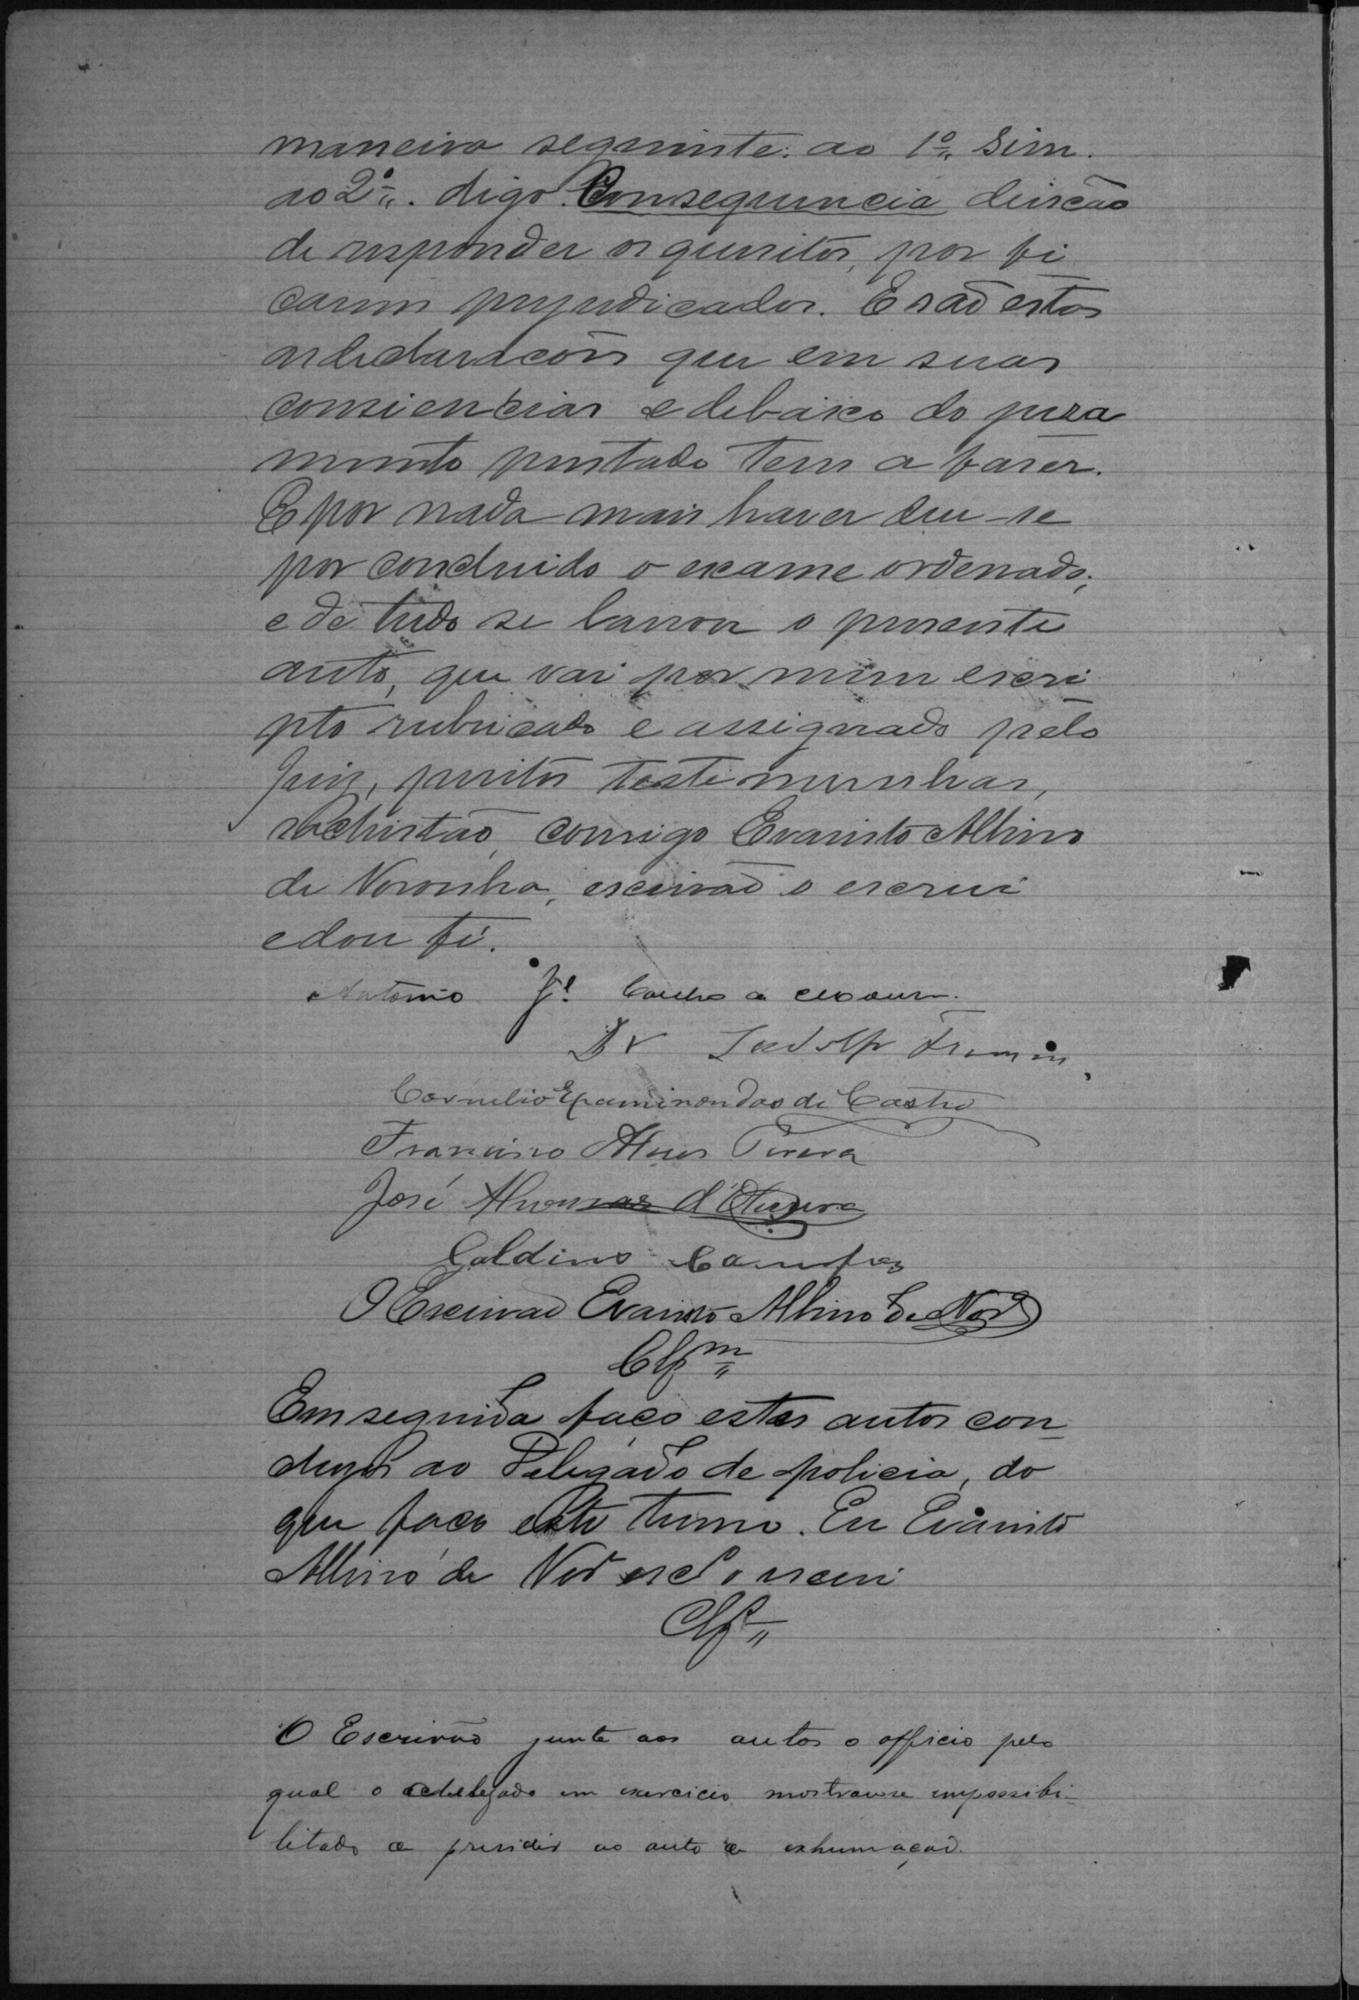 maneira seguinte: ao 1º,, Sim.
ao 2º,,. digo. Consequencia deixão
de responder os quesitos, por fi
carem prejudicados. E são estas
as declaracões que em suas
consiencias e debaixo do jura
mento prestado tem a faser.
E por nada mais haver deu-se
por concluido o exame ordenado;
e de tudo se lavrou o presente
auto, que vai por mim escri
pto rubricado e assignado pelo
Juiz, peritos testemunhas,
sachristão, comigo Evaristo Albino
de Noronha, escrivão o escrevi
e dou fé.
Antonio Jé
Dr
Cornelio Epaminondas de Castro
Francisco Alves Pereira
José d'Oliveira
Galdino
O Escrivão Evaristo Albino de Norª
Clsᵐ,,
Em seguida faço estes autos con
clusos ao Delegado de policia, do
que faço este termo. Eu Evaristo
Albino de Norª escᵐ o escrevi
Cls,,
O Escrivão junte aos autos o officio pelo
qual o delegado em exercicio mostrou-se impossibi-
litado a presidir ao auto de exhumação.